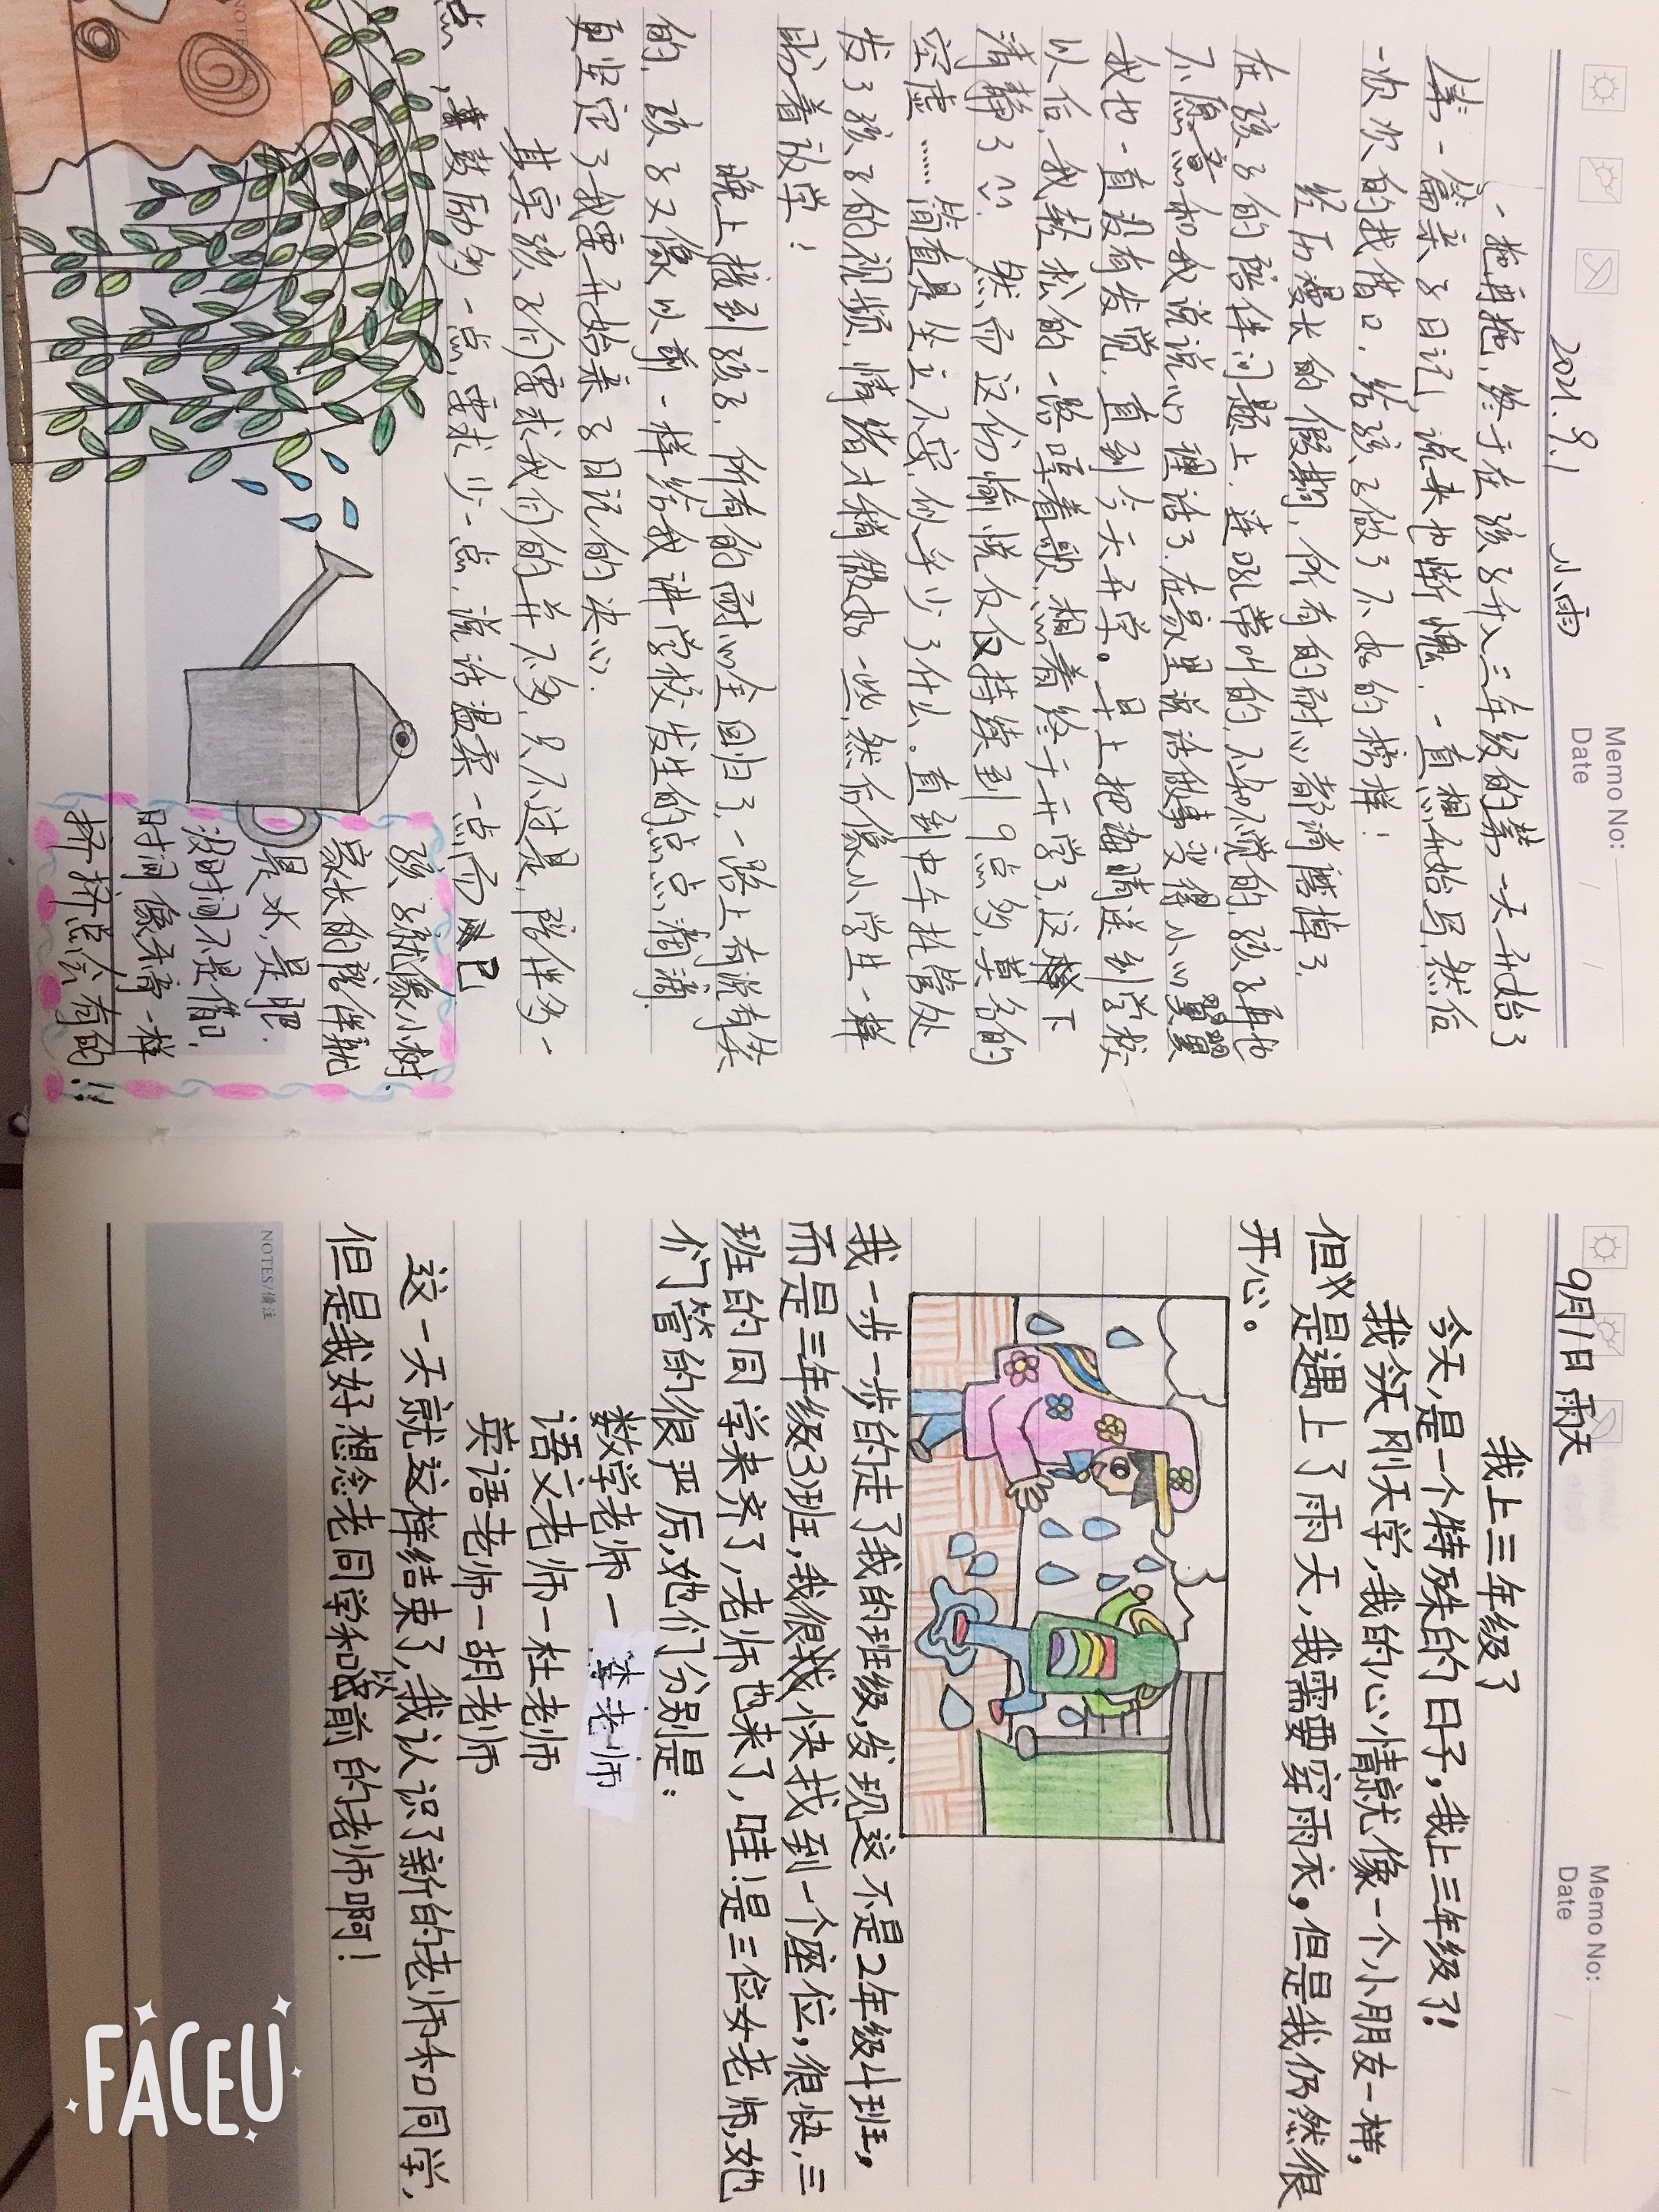 Memo No:
Date / /
2021.9.1 小雨
一拖再拖，终于在孩子升入三年级的第一天开始了
第一篇亲子日记，说来也惭愧，一直想开始写，然后
一次次的找借口，给孩子做了不好的榜样！
经历漫长的假期，所有的耐心都消磨掉了，
在孩子的陪伴问题上，连吼带叫的，不知不觉的，孩子再也
不愿意和我说说心理话了，在家里说话做事变得小心翼翼
我也一直没有发觉，直到今天开学。早上把海晴送到学校
以后，我轻松的一路哼着歌，想着终于开学了，这下
清静了，然而这份愉悦仅仅持续到9点多，莫名的
空虚……简直是坐立不安，似乎少了什么。直到中午托管处
发了孩子的视频，情绪才稍微好一些，然后像小学生一样
盼着放学！
晚上接到孩子，所有的耐心全回归了，一路上有说有笑
的，孩子又像以前一样给我讲学校发生的点点滴滴，
更坚定了我要开始亲子日记的决心，
其实孩子们要求我们的并不多，只不过是，陪伴多一
点，鼓励多一点，要求少一点，说话温柔一点而已
孩子就像小树，
家长的陪伴就
是水，是肥，
没时间不是借口，
时间像海绵一样
挤挤总会有的!!!
NOTES
Memo No:
Date / /
9月1日 雨天
我上三年级了
今天，是一个特殊的日子，我上三年级了！
我今天刚天学，我的心情就像一个小朋友一样，
但是遇上了雨天，我需要穿雨衣，但是我仍然很
开心。
我一步一步的走了我的班级，发现这不是2年级4班，
而是三年级3班，我很快找到一个座位，很快，三
班的同学来齐了，老师也来了，哇！是三位女老师，她
们管的很严厉，她们分别是：
数学老师一李老师
语文老师一杜老师
英语老师一胡老师
这一天就这样结束了，我认识了新的老师和同学，
但是我好想念老同学和以前的老师啊！
NOTES/备注
FACEU